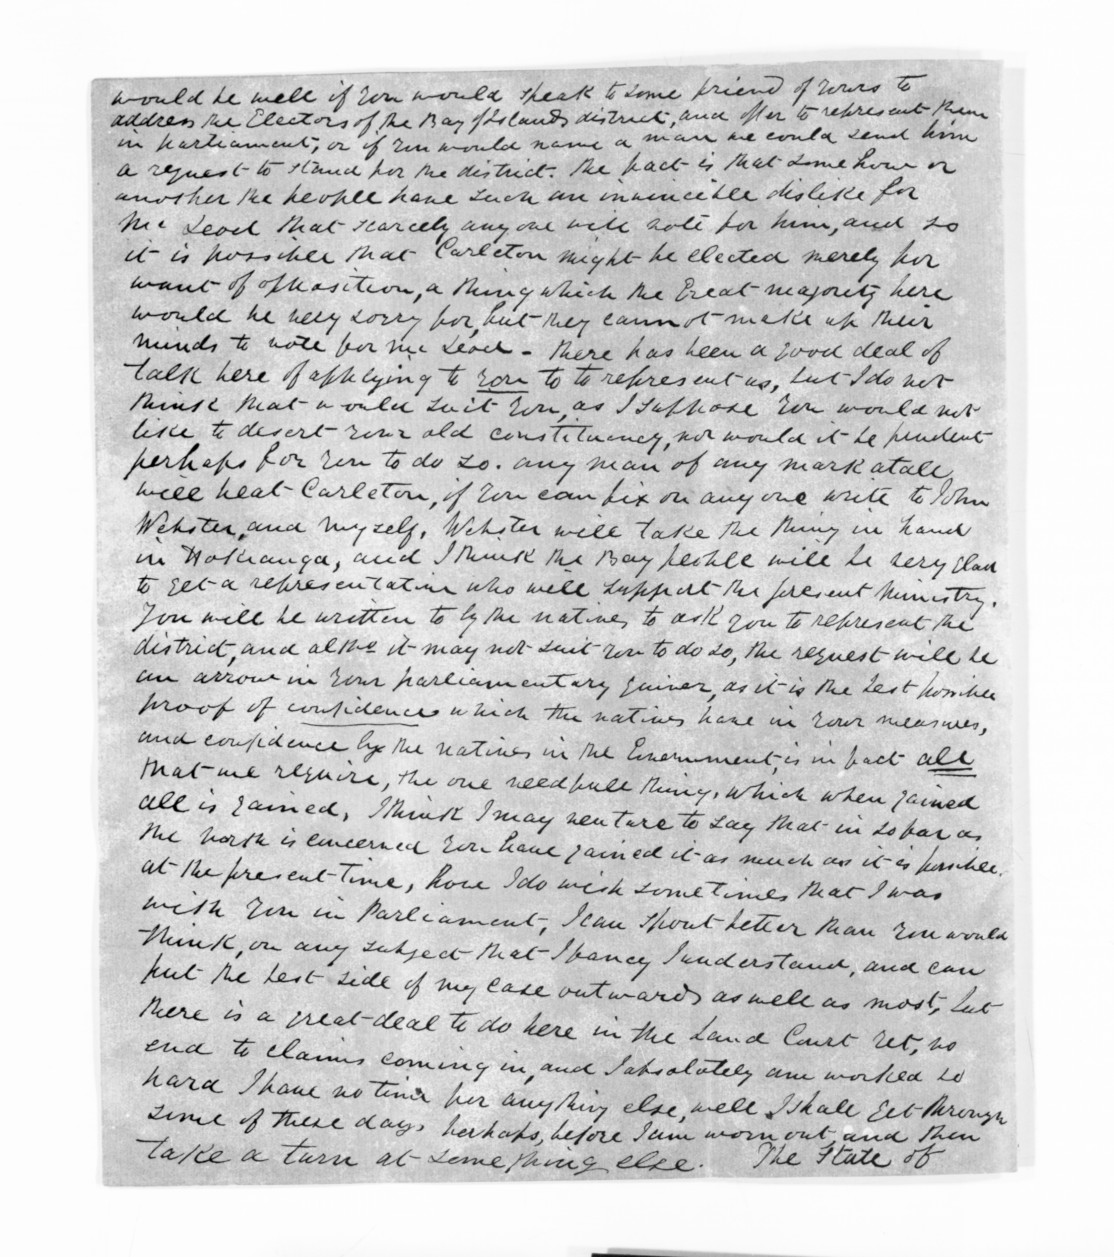 would be well if you would speak to some friend of yours to
address the Electors of the Bay of Islands district, and offer to represent them
in parliament, or if you would name a man we could send him
a request to stand for the district. the fact is that some how or
another the people have such an invincible dislike for
Mc Leod that scarcely any one will vote for him, and so
it is possible that Carleton might be elected merely for
want of opposition, a thing which the Great majority here
would be very sorry for, but they cannot make up their
minds to vote for Mc Leod - there has been a good deal of
talk here of applying to you to to represent us, but I do not
think that would suit you, as I suppose you would not
like to desert your old constituency, nor would it be prudent
perhaps for you to do so. any man of any mark atall
will beat Carleton, if you can fix on any one write to John
Webster, and myself, Webster will take the thing in hand
in Hokianga, and I think the Bay people will be very glad
to get a representative who will support the present Ministry.
You will be written to by the natives to ask you to represent the
district, and altho it may not suit you to do so, the request will be
an arrow in your parliamentary quiver, as it is the best possible
proof of confidence which the natives have in your measures,
and confidence by the natives in the Government, is in fact all
that we require, the one needfull thing, which when gained
all is gained, I think I may venture to say that in so far as
the North is concerned you have gained it as much as it is possible
at the present time, how I do wish sometimes that I was
with you in Parliament, I can spout better than you would
think, on any subject that I fancy I understand, and can
put the best side of my case outwards as well as most, but
there is a great deal to do here in the Land Court yet, no
end to claims coming in, and I absolutely am worked so
hard I have no time for any thing else, well I shall get through
some of these days perhaps, before I am worn out, and then
take a turn at something else. The State of